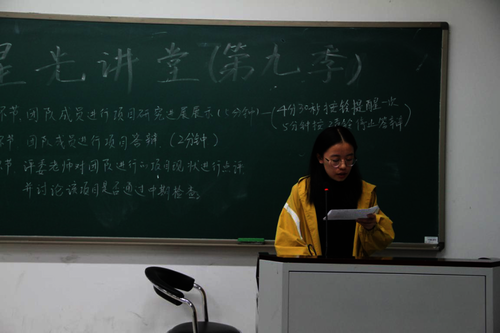 星光讲堂(第九季)
环节 团队成员进行项目研究进展展示(5分钟)—(4分30秒按铃提醒一次
5分钟按2次铃停止答辩)
环节 团队成员进行项目答辩 (2分钟)
环节 评委老师对团队进行的项目现状进行点评
并讨论该项目是否通过中期检查